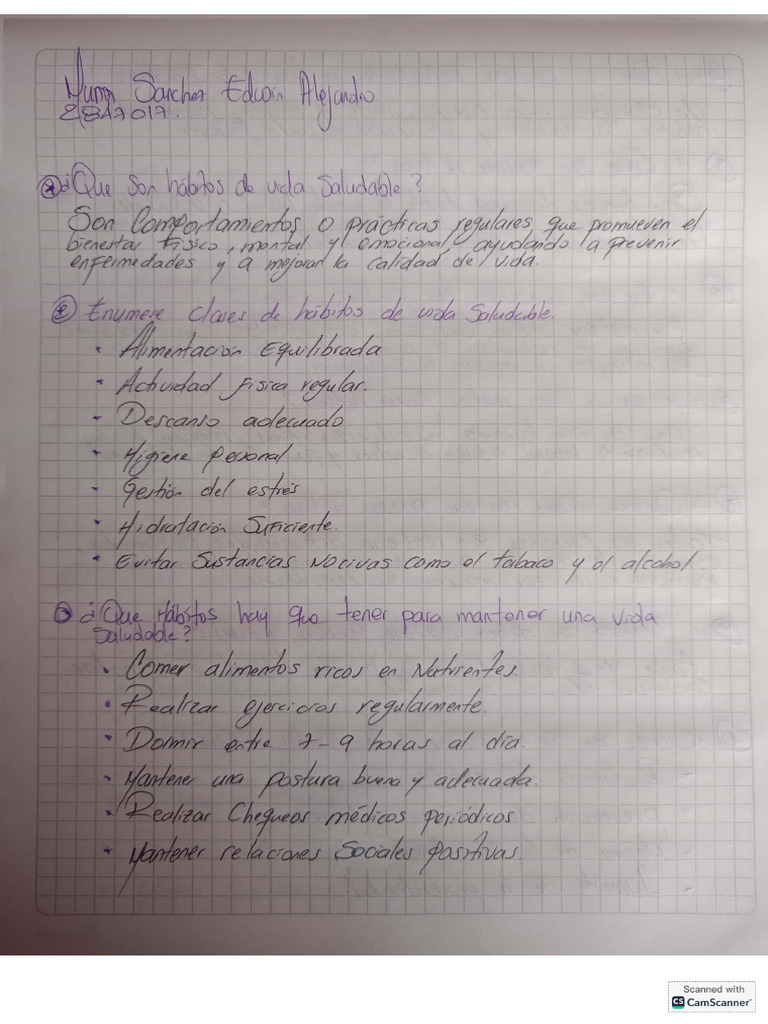 Sanchez Edwin Alejandro
¿Que son hábitos de vida saludable?
Son Comportamientos o prácticas regulares, que promueven el
bienestar Físico, mental y emocional, ayudando a prevenir
enfermedades y a mejorar la calidad de vida.
② Enumere claves de hábitos de vida saludable.
• Alimentación Equilibrada
• Actividad Física regular.
• Descanso adecuado
• Higiene Personal
• Gestión del estrés
• Hidratación Suficiente.
• Evitar Sustancias Nocivas como el tabaco y el alcohol
¿Que Hábitos hay que tener para mantener una vida
saludable?
• Comer alimentos ricos en Nutrientes.
• Realizar ejercicios regularmente.
• Dormir entre 7-9 horas al día.
• Mantener una postura buena y adecuada.
• Realizar Chequeos médicos periódicos
• Mantener relaciones Sociales Positivas.
Scanned with
CS CamScanner